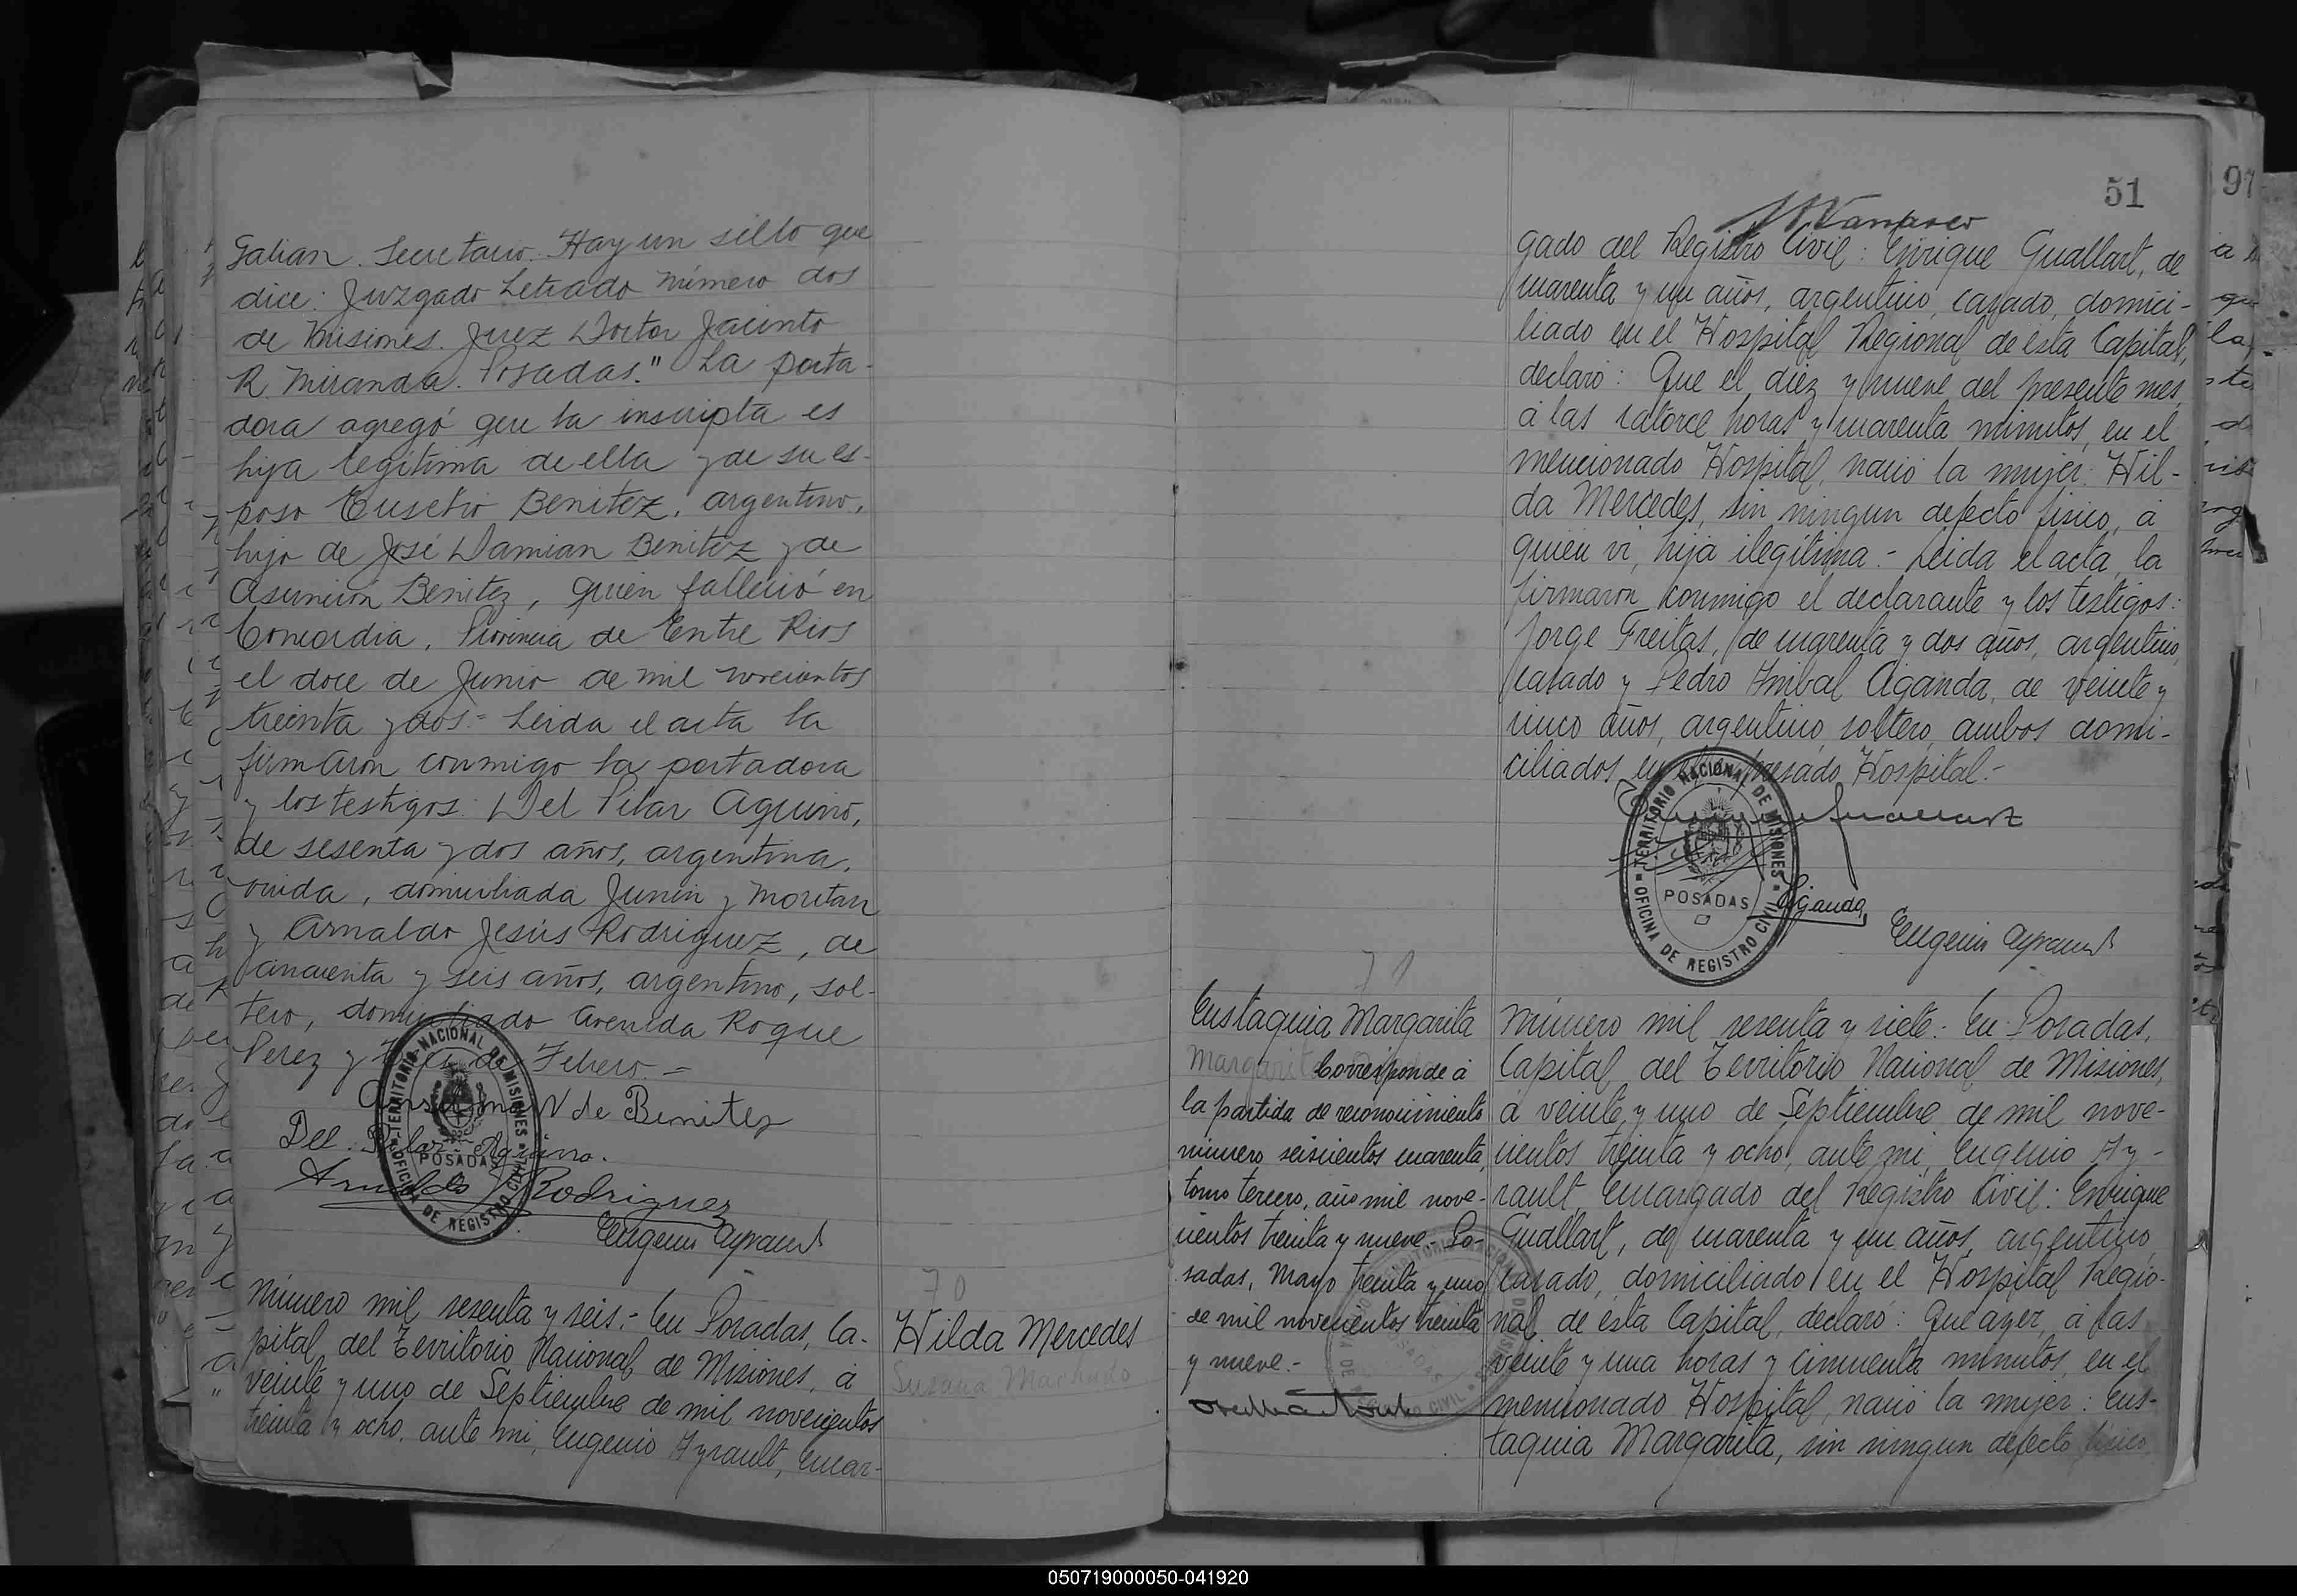 Galian. Secretario. Hay un sello que
dice: Juzgado Letrado número dos
de Misiones. Juez Doctor Jacinto
R. Miranda. Posadas." La porta-
dora agregó que la inscripta es
hija legítima de ella y de su es-
poso Eusebio Benitez, argentino,
hijo de José Damian Benitez y de
Asunción Benitez, quien falleció en
Concordia, Provincia de Entre Rios
el doce de Junio de mil novecientos
treinta y dos.- Leida el acta la
firmaron conmigo la portadora
y los testigos: Del Pilar Aquino,
de sesenta y dos años, argentina,
viuda, domiciliada Junin y
y Arnaldo Jesús Rodriguez, de
cincuenta y seis años, argentino, sol-
tero, domiciliado Avenida Roque
Perez y de Febrero.-
N de Benitez
Del Pilar Aquino.
Arnaldo J Rodriguez
Eugenio Ayrault
TERRITORIO NACIONAL DE MISIONES
POSADAS
OFICINA DE REGISTRO CIVIL
70
Hilda Mercedes
Susana Machado
Número mil sesenta y seis:- En Posadas, Ca-
pital del Territorio Nacional de Misiones, á
veinte y uno de Septiembre de mil novecientos
treinta y ocho, ante mi, Eugenio Ayrault, encar-
51
97
gado del Registro Civil: Enrique Guallart, de
cuarenta y un años, argentino, casado, domici-
liado en el Hospital Regional de ésta Capital,
declaró: Que el diez y nueve del presente mes,
á las catorce horas y cuarenta minutos, en el
mencionado Hospital, nació la mujer: Hil-
da Mercedes, sin ningun defecto fisico, á
quien vi, hija ilegítima.- Leida el acta, la
firmaron conmigo el declarante y los testigos:
Jorge Freitas, de cuarenta y dos años, argentino,
casado y Pedro Anibal Aganda, de veinte y
cinco años, argentino, soltero, ambos domi-
ciliados en el expresado Hospital.-
TERRITORIO NACIONAL DE MISIONES
POSADAS
OFICINA DE REGISTRO CIVIL
Eugenio Ayrault
71
Eustaquia Margarita
Margarita Corresponde á
la partida de reconocimiento
número seiscientos cuarenta,
tomo tercero, año mil nove-
cientos treinta y nueve.- Po-
sadas, Mayo treinta y uno
de mil novecientos treinta
y nueve.-
Número mil sesenta y siete: En Posadas,
Capital del Territorio Nacional de Misiones,
á veinte y uno de Septiembre de mil nove-
cientos treinta y ocho, ante mi, Eugenio Ay-
rault, Encargado del Registro Civil: Enrique
Guallart, de cuarenta y un años, argentino,
casado, domiciliado en el Hospital Regio-
nal de ésta Capital, declaró: Que ayer, á las
veinte y una horas y cincuenta minutos, en el
mencionado Hospital, nació la mujer: Eus-
taquia Margarita, sin ningun defecto fisico
050719000050-041920